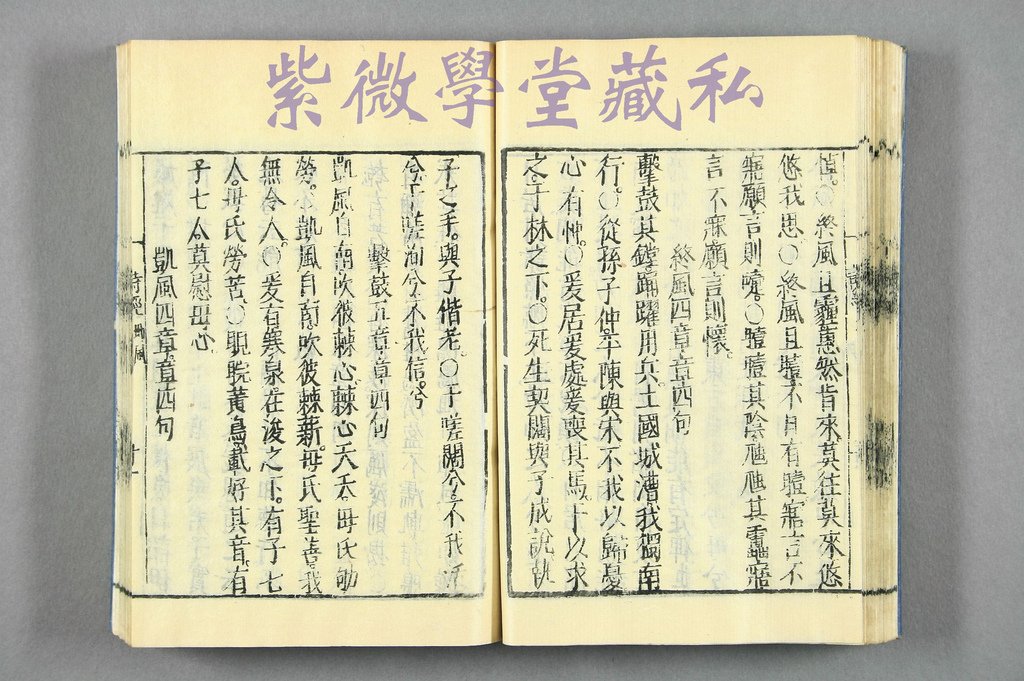 紫微學堂藏私
悼○終風且霾惠然肯來莫往莫來悠
悠我思○終風且曀不日有曀寤言不
寐願言則嚏○曀曀其陰虺虺其靁寤
言不寐願言則懷。
終風四章章四句
擊鼓其鏜踊躍用兵土國城漕我獨南
行。○從孫子仲平陳與宋不我以歸憂
心有忡。○爰居爰處爰喪其馬。于以求
之。于林之下。○死生契闊與子成說執
子之手。與子偕老。○于嗟闊兮。不我活
兮于嗟洵兮不我信。兮
擊鼓五章章四句
凱風自南吹彼棘心。棘心夭夭。母氏劬
勞。○凱風自南。吹彼棘薪。母氏聖善我
無令人。○爰有寒泉。在浚之下。有子七
人。母氏勞苦。○睍睆黃鳥。載好其音。有
子七人。莫慰母心。
凱風四章。章四句
詩經